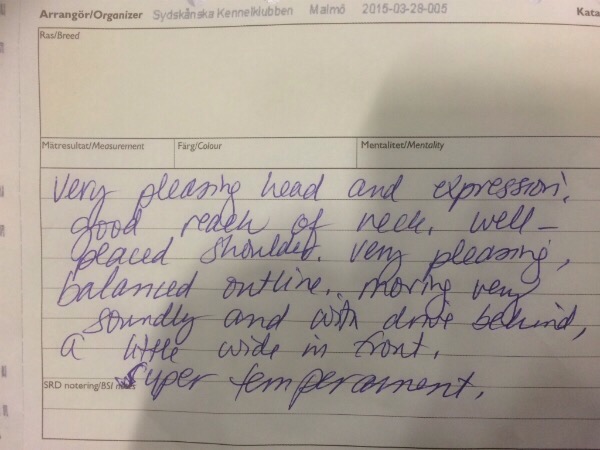 Arrangör/Organizer Sydskånska Kennelklubben Malmö 2015-03-28-005 Kata
Ras/Breed
Mätresultat/Measurement Färg/Colour Mentalitet/Mentality
Very pleasing head and expression,
good reach of neck, well-
placed shoulder. very pleasing,
balanced outline.. moving very
soundly and with drive behind,
a little wide in front.
SRD notering/BSI notes
Super temperament.